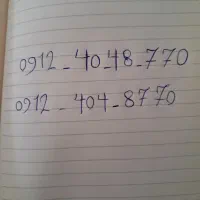 0912_40_48_770
0912_404_8770